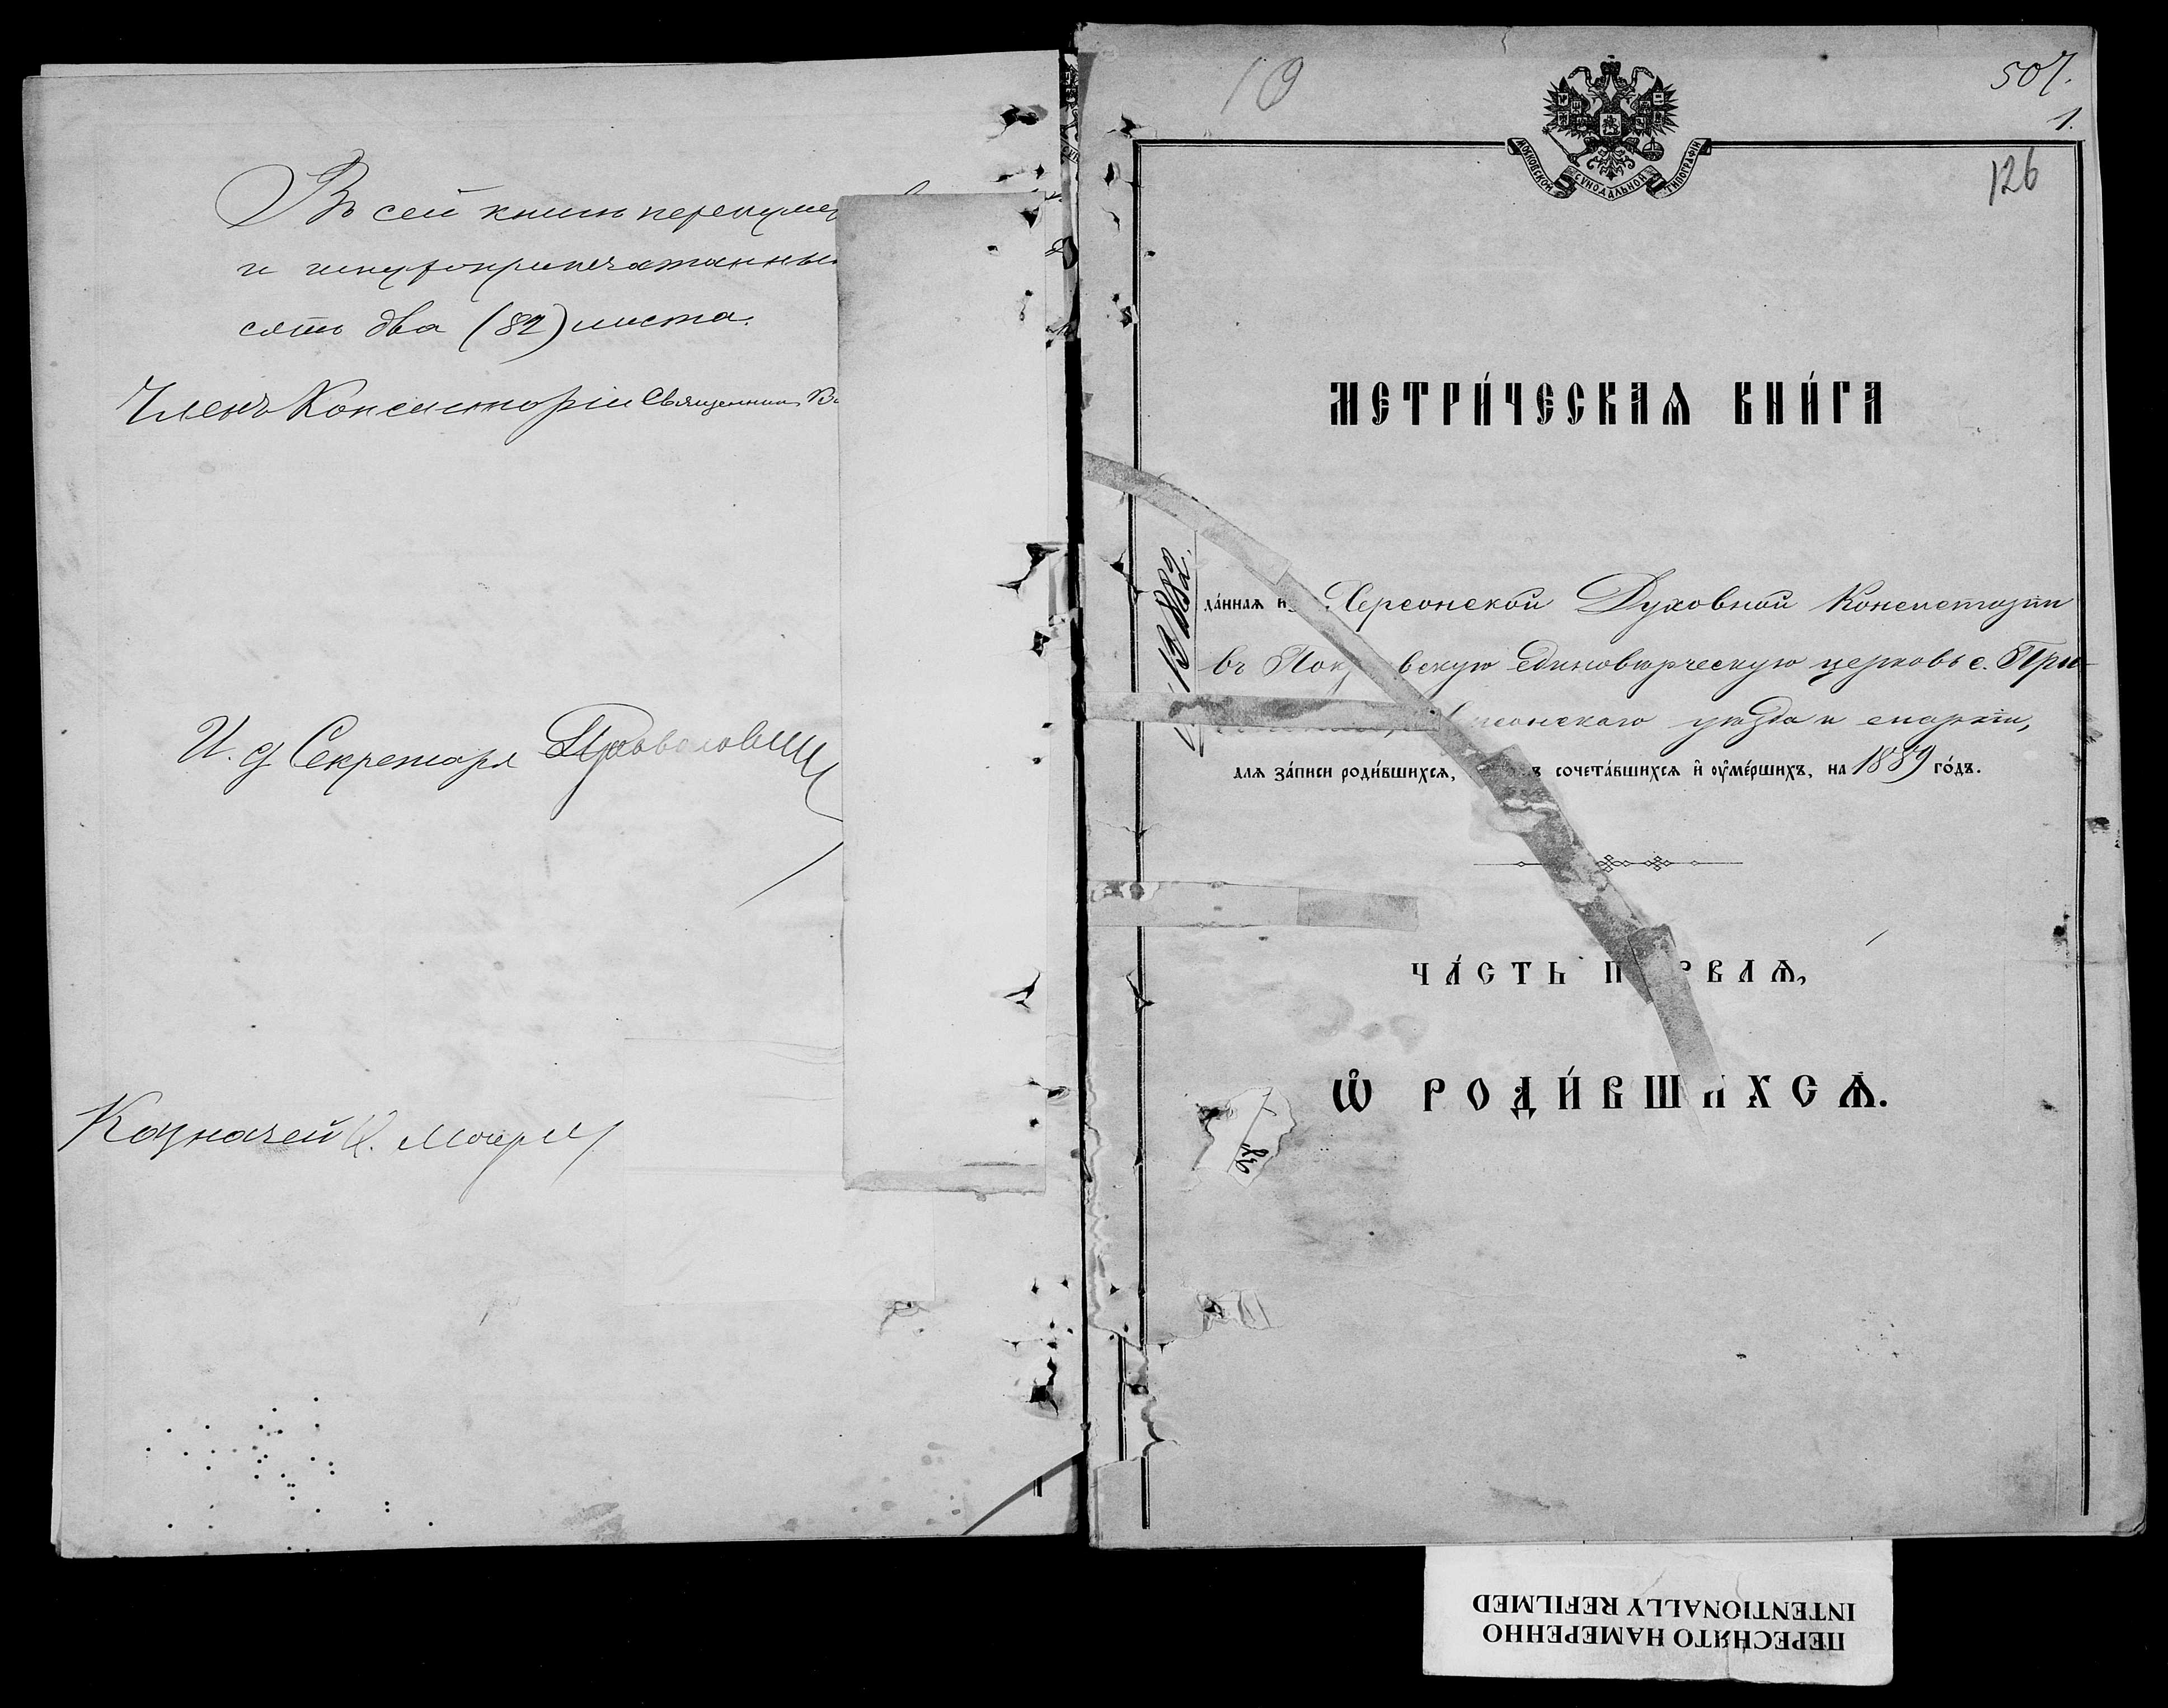 Въ сей книгѣ перенумер
и шнуроприпечатанны
сятъ два (82) листа.
Членъ Консисторіи Священникъ
И. д. Секретаря
Казначей
10
507.
1.
126
МОСКОВСКОЙ СѴНОДАЛЬНОЙ ТИПОГРАФІИ
МЕТРИ́ЧЕСКАѦ КНИ́ГА
13882.
да́ннаѧ Херсонской Духовной Консисторіи
въ Пок вскую Единовѣрческую церковь с. При-
сонскаго уѣзда и епархіи,
длѧ за́писи роди́вшихсѧ, сочета́вшихсѧ и҆ ᲂу҆ме́ршихъ, на 1889 го́дъ.
ЧА́СТЬ П РВАѦ,
Ѡ҆ РОДИ́ВШИХСѦ.
ПЕРЕСНЯТО НАМЕРЕННО
INTENTIONALLY REFILMED